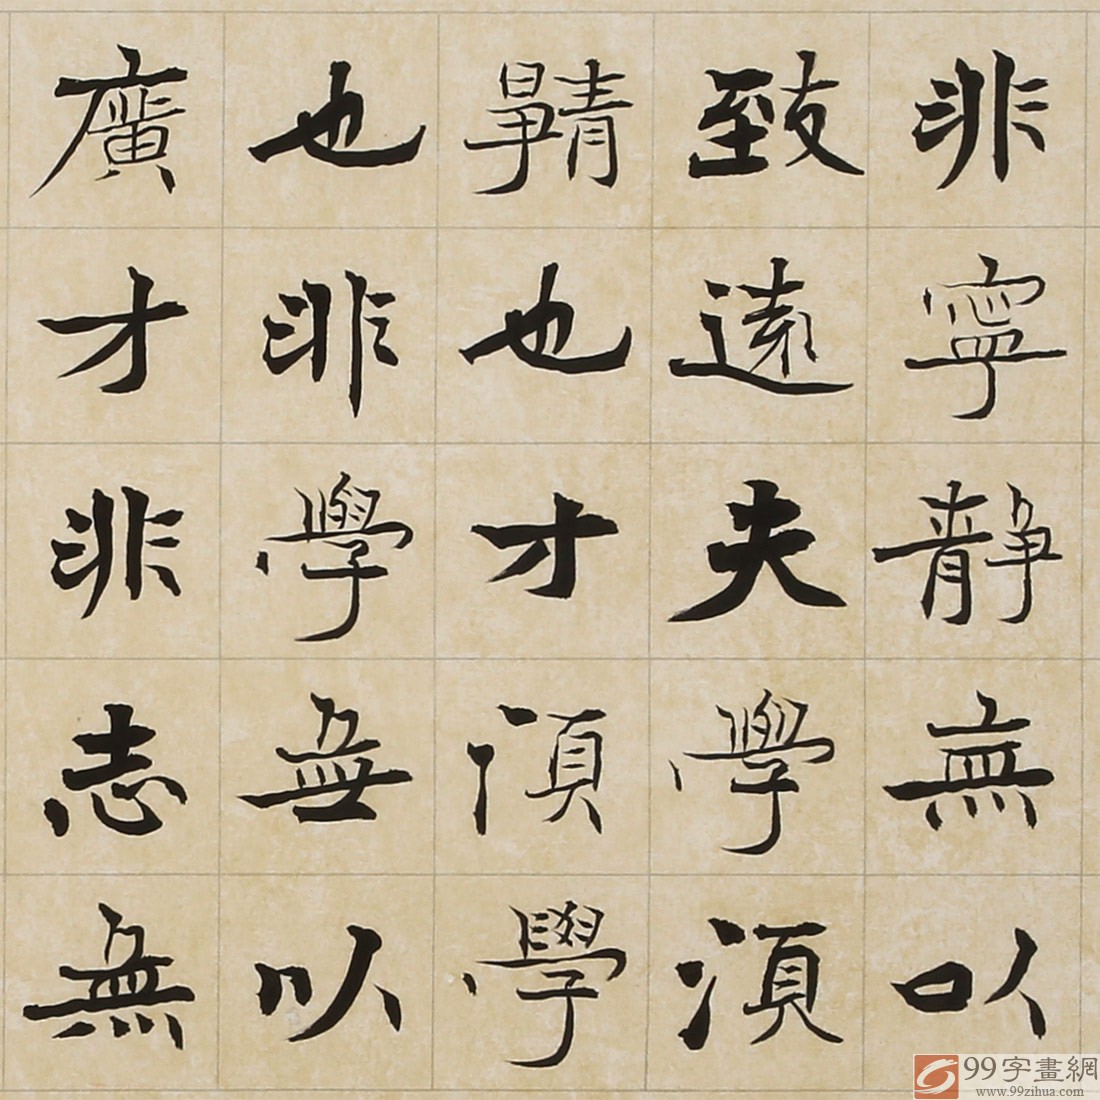 非寧靜無以
致遠夫學湏
靜也才湏學
也非學無以
廣才非志無
99字畫網
www.99zihua.com